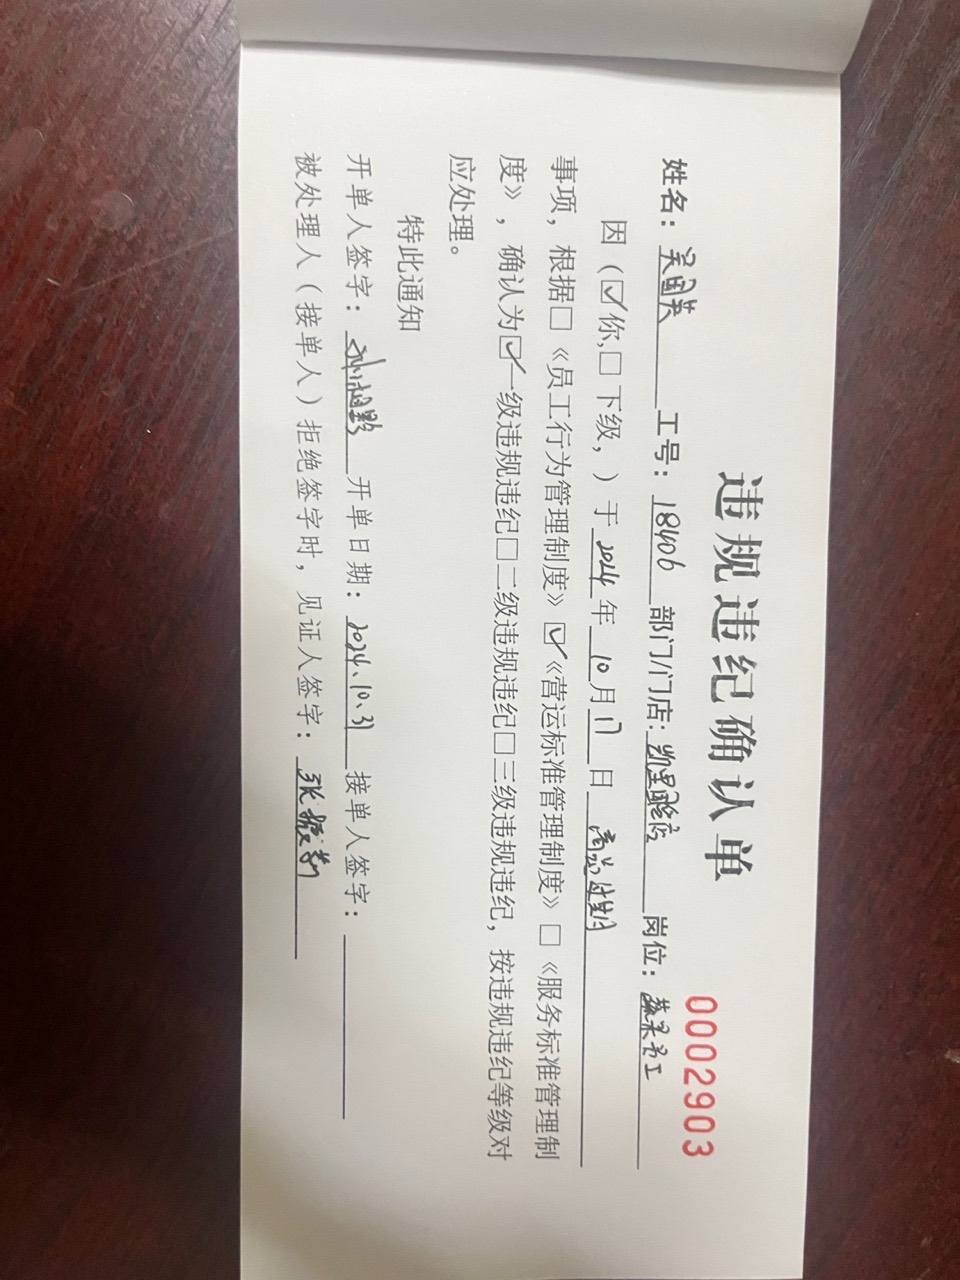 违规违纪确认单
0002903
姓名：吴国英 工号：18406 部门/门店：凯里国贸店 岗位：蔬果员工
因（☑你,□下级，）于2024年10月17日商品过期
事项，根据□《员工行为管理制度》☑《营运标准管理制度》□《服务标准管理制
度》，确认为☑一级违规违纪□二级违规违纪□三级违规违纪，按违规违纪等级对
应处理。
特此通知
开单人签字： 开单日期：2024.10.31 接单人签字：
被处理人（接单人）拒绝签字时，见证人签字：张振菊